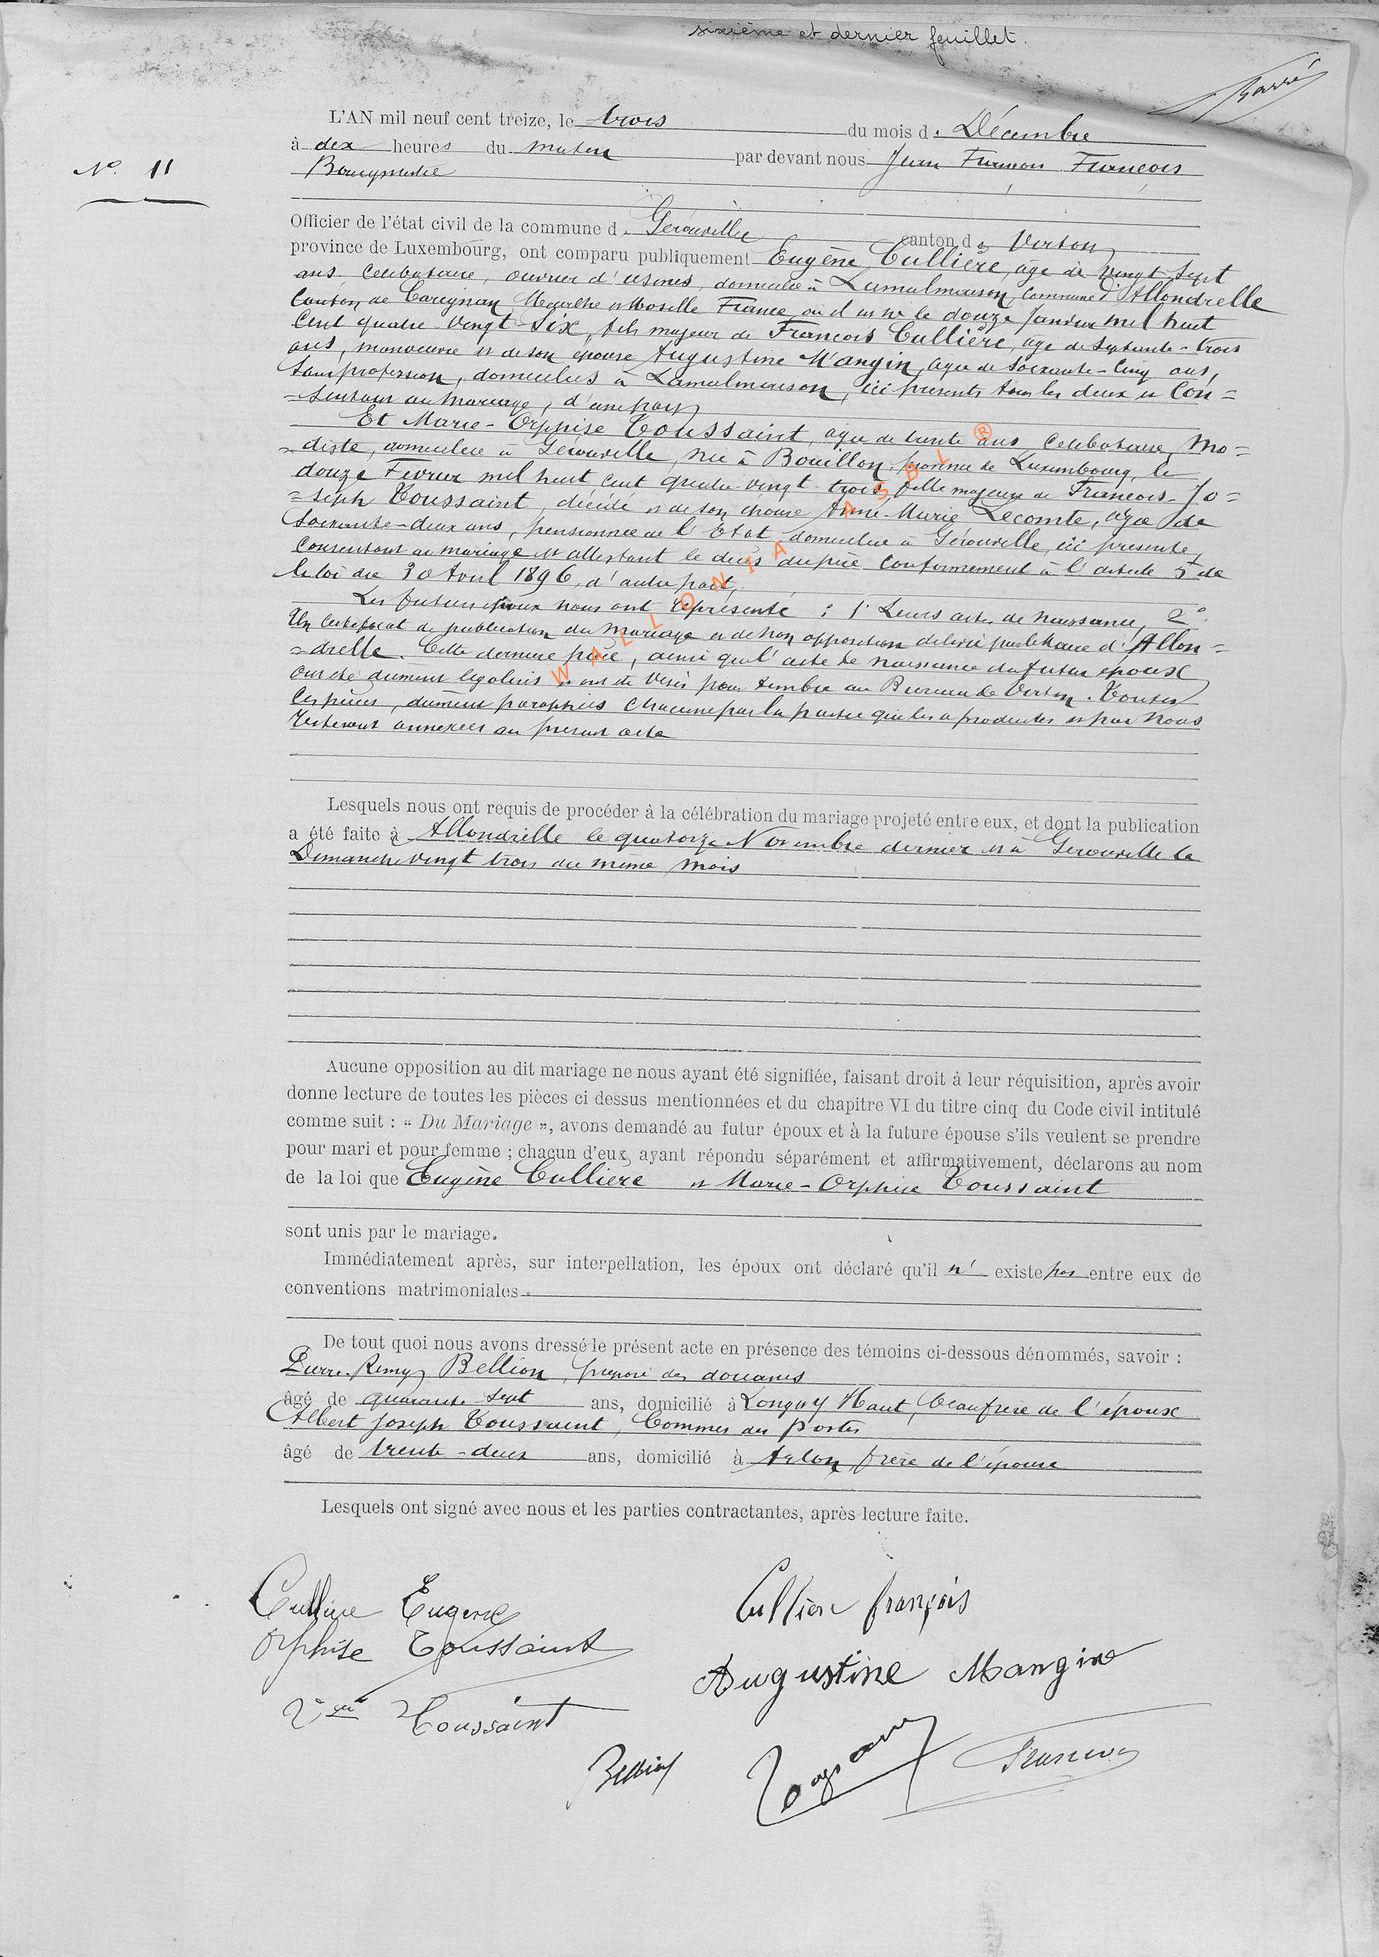 sixième et dernier feuillet.
N° 11
L'AN mil neuf cent treize, le trois du mois de Décembre
à dix heures du matin par devant nous Jean Firmon François
Bourgmestre
Officier de l'état civil de la commune de Gérouville canton de Virton
province de Luxembourg, ont comparu publiquement Eugène Cullière, âgé de vingt-sept
ans, célibataire, ouvrier d'usines, domicilié à Lamalmaison, commune d'Allondrelle
Canton de Carignan Meurthe et Moselle France, où il est né le douze Janvier mil huit
Cent quatre-vingt-six, fils majeur de François Cullière, âgé de septante-trois
ans, manoeuvre et de son épouse Augustine Mangin, âgée de soixante-cinq ans,
Sans profession, domiciliés à Lamalmaison, ici présents tous les deux et Con=
=sentant au mariage, d'une part,
Et Marie-Orphise Toussaint, âgée de trente ans célibataire, Mo=
=diste, domiciliée à Gérouville, née à Bouillon, province de Luxembourg, le
douze Février mil huit cent quatre vingt trois, fille majeure de François-Jo=
=seph Toussaint, décédé et de son épouse Anne-Marie Lecomte, âgée de
Soixante-deux ans, pensionnée de l'Etat, domiciliée à Gérouville, ici présente,
Consentant au mariage et attestant le décès du père conformément à l'article 5 de
la loi du 30 Avril 1896, d'autre part,
Les futurs époux nous ont représenté : 1° Leurs actes de naissance, 2°
Un certificat de publication du mariage et de non opposition délivré par le Maire d'Allon=
=drelle. Cette dernière pièce, ainsi que l'acte de naissance du futur époux
ont été dument légalisés et ont été visés pour timbre au Bureau de Virton. Toutes
Ces pièces, dûment paraphées chacune par la partie qui les a produites et par nous
resteront annexées au présent acte
WALLONIA ASBL ®
Lesquels nous ont requis de procéder à la célébration du mariage projeté entre eux, et dont la publication
a été faite à Allondrelle le quatorze Novembre dernier et à Gérouville le
Dimanche vingt trois du même mois
Aucune opposition au dit mariage ne nous ayant été signifiée, faisant droit à leur réquisition, après avoir
donne lecture de toutes les pièces ci dessus mentionnées et du chapitre VI du titre cinq du Code civil intitulé
comme suit : « Du Mariage », avons demandé au futur époux et à la future épouse s'ils veulent se prendre
pour mari et pour femme ; chacun d'eux, ayant répondu séparément et affirmativement, déclarons au nom
de la loi que Eugène Cullière et Marie-Orphise Toussaint
sont unis par le mariage.
Immédiatement après, sur interpellation, les époux ont déclaré qu'il n' existe pas entre eux de
conventions matrimoniales.
De tout quoi nous avons dressé le présent acte en présence des témoins ci-dessous dénommés, savoir :
Pierre Remy Bellion, préposé des douanes
âgé de quarante sept ans, domicilié à Longwy Haut, beau frère de l'époux
Albert Joseph Toussaint, Commis des Postes
âgé de trente-deux ans, domicilié à Arlon, frère de l'épouse
Lesquels ont signé avec nous et les parties contractantes, après lecture faite.
Cullière Eugène
Cullière françois
Orphise Toussaint
Augustine Mangin
Vve Toussaint
Bellion
François